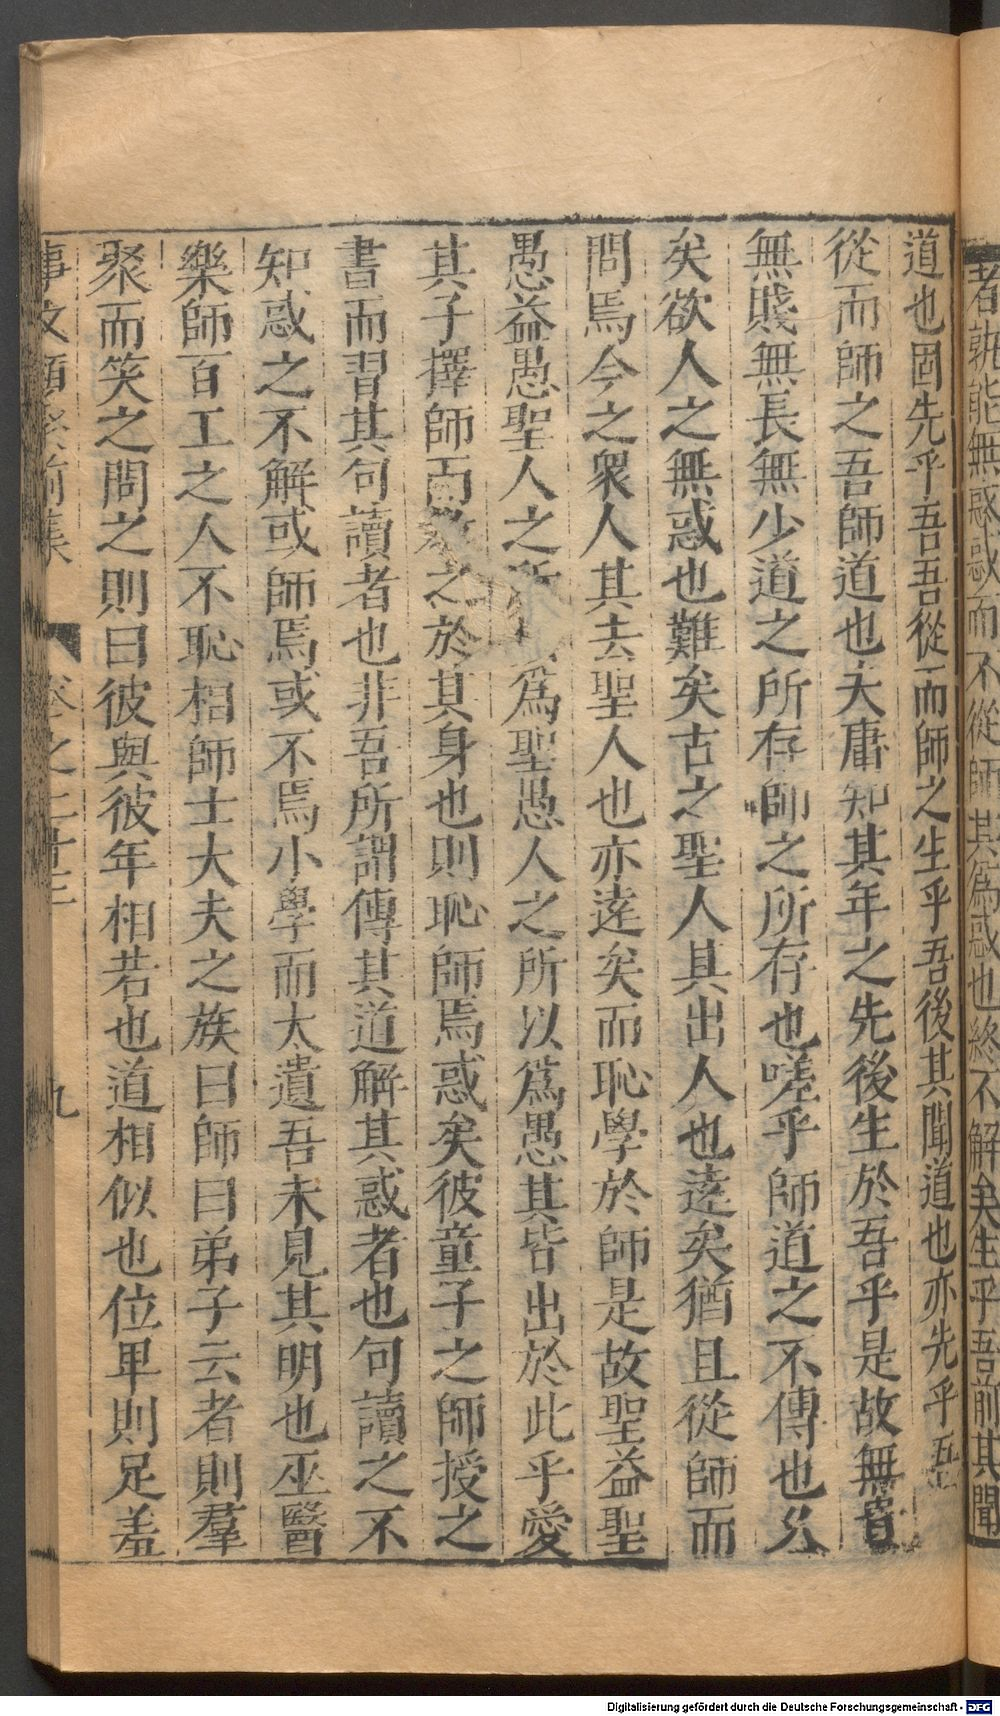 者孰能無惑惑而不從師其為惑也終不解矣生乎吾前其聞
道也固先乎吾吾從而師之生乎吾後其聞道也亦先乎吾
從而師之吾師道也夫庸知其年之先後生於吾乎是故無貴
無賤無長無少道之所存師之所存也嗟乎師道之不傳也久
矣欲人之無惑也難矣古之聖人其出人也遠矣猶且從師而
問焉今之衆人其去聖人也亦遠矣而恥學於師是故聖益聖
愚益愚聖人之所爲聖愚人之所以爲愚其皆出於此乎愛
其子擇師而教之於其身也則恥師焉惑矣彼童子之師授之
書而習其句讀者也非吾所謂傳其道解其惑者也句讀之不
知惑之不解或師焉或不焉小學而大遺吾未見其明也巫醫
樂師百工之人不恥相師士大夫之族曰師曰弟子云者則羣
聚而笑之問之則曰彼與彼年相若也道相似也位卑則足羞
事文類聚前集 卷之二十三 九
Digitalisierung gefördert durch die Deutsche Forschungsgemeinschaft - DFG